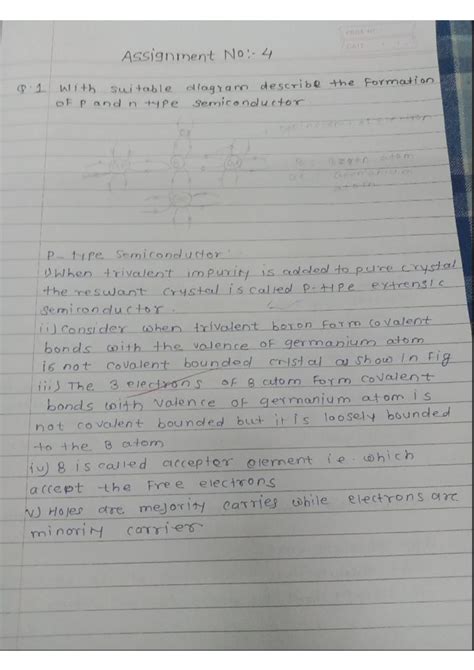 Assignment No:- 4
Q.1 With suitable diagram describe the Formation
of P and n type semiconductor
B : boron atom
P- type semiconductor.
i) When trivalent impurity is added to pure crystal
the reswant crystal is called P-type extrensic
semiconductor.
ii) Consider when trivalent boron form covalent
bonds with the valence of germanium atom
is not covalent bounded cristal as show in fig
iii) The 3 electrons of B atom form covalent
bonds with valence of germanium atom is
not covalent bounded but it is loosely bounded
to the B atom
iv) B is called acceptor element i.e. which
accept the free electrons
v) Holes are mejority carries while electrons are
minority carrier